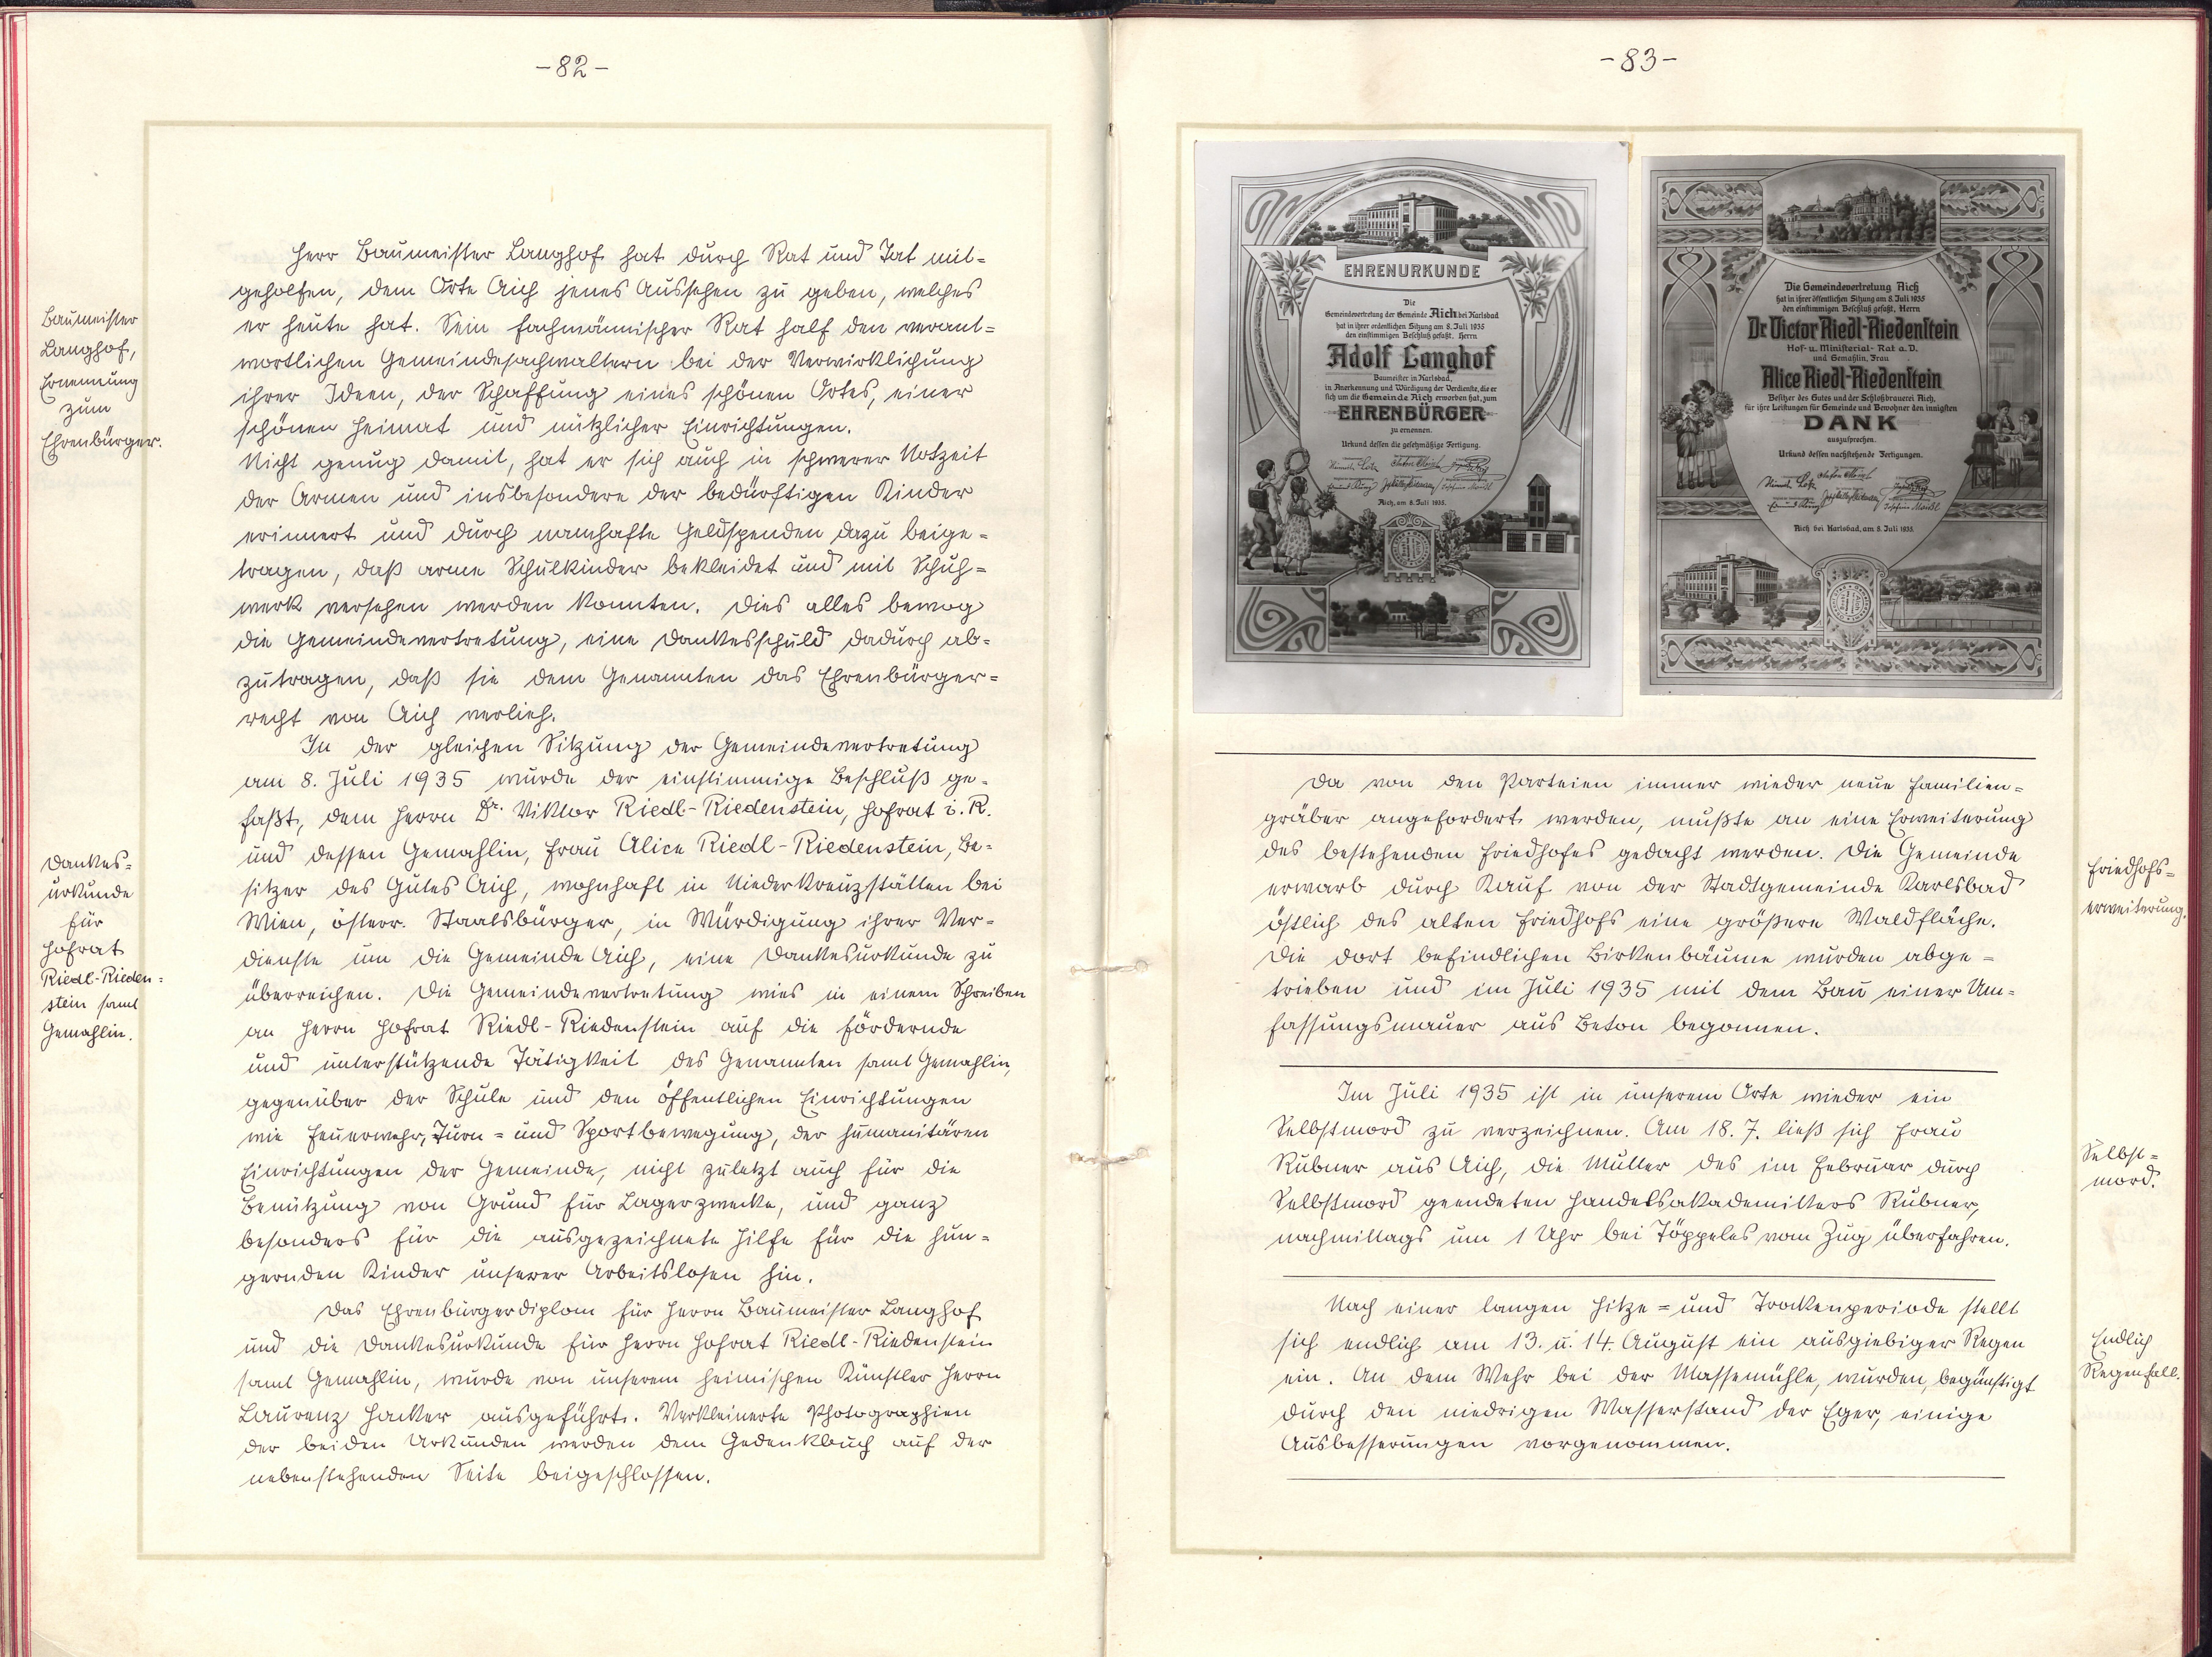 -82-
Baumeister
Langhof,
Ernennung
zum
Ehrenbürger.
Herr Baumeister Langhof hat durch Rat und Tat mit=
geholfen, dem Orte Aich jenes Aussehen zu geben, welches
er heute hat. Sein fachmännischer Rat half den verant=
wortlichen Gemeindesachwaltern bei der Verwirklichung
ihrer Ideen, der Schaffung eines schönen Ortes, einer
schönen Heimat und nützlicher Einrichtungen.
Nicht genug damit, hat er sich auch in schwerer Notzeit
der Armen und insbesondere der bedürftigen Kinder
erinnert und durch namhafte Geldspenden dazu beige=
tragen, daß arme Schulkinder bekleidet und mit Schuh=
werk versehen werden konnten. Dies alles bewog
die Gemeindevertretung, eine Dankesschuld dadurch ab=
zutragen, daß sie dem Genannten das Ehrenbürger=
recht von Aich verlieh.
Dankes=
urkunde
für
Hofrat
Riedl-Rieden=
stein samt
Gemahlin.
In der gleichen Sitzung der Gemeindevertretung
am 8. Juli 1935 wurde der einstimmige Beschluß ge=
faßt, dem Herrn Dr. Viktor Riedl-Riedenstein, Hofrat i. R.
und dessen Gemahlin, Frau Alice Riedl-Riedenstein, Be=
sitzer des Gutes Aich, wohnhaft in Niederkreuzstätten bei
Wien, österr. Staatsbürger, in Würdigung ihrer Ver=
dienste um die Gemeinde Aich, eine Dankesurkunde zu
überreichen. Die Gemeindevertretung wies in einem Schreiben
an Herrn Hofrat Riedl-Riedenstein auf die fördernde
und unterstützende Tätigkeit des Genannten samt Gemahlin,
gegenüber der Schule und den öffentlichen Einrichtungen
wie Feuerwehr, Turn= und Sportbewegung, der humanitären
Einrichtungen der Gemeinde, nicht zuletzt auch für die
Benützung von Grund für Lagerzwecke, und ganz
besonders für die ausgezeichnete Hilfe für die hun=
gernden Kinder unserer Arbeitslosen hin.
Das Ehrenbürgerdiplom für Herrn Baumeister Langhof
und die Dankesurkunde für Herrn Hofrat Riedl-Riedenstein
samt Gemahlin, wurde von unserem heimischen Künstler Herrn
Laurenz Hacker ausgeführt. Verkleinerte Photographien
der beiden Urkunden werden dem Gedenkbuch auf der
nebenstehenden Seite beigeschlossen.
-83-
EHRENURKUNDE
Die
Gemeindevertretung der Gemeinde Aich bei Karlsbad
hat in ihrer ordentlichen Sitzung am 8. Juli 1935
den einstimmigen Beschluß gefaßt, Herrn
Adolf Langhof
Baumeister in Karlsbad,
in Anerkennung und Würdigung der Verdienste, die er
sich um die Gemeinde Aich erworben hat, zum
EHRENBÜRGER
zu ernennen.
Urkund dessen die gesetzmäßige Fertigung.
Aich, am 8. Juli 1935.
Die Gemeindevertretung Aich
hat in ihrer öffentlichen Sitzung am 8. Juli 1935
den einstimmigen Beschluß gefaßt, Herrn
Dr Victor Riedl-Riedenstein
Hof- u. Ministerial-Rat a. D.
und Gemahlin, Frau
Alice Riedl-Riedenstein
Besitzer des Gutes und der Schloßbrauerei Aich,
für ihre Leistungen für Gemeinde und Bewohner den innigsten
DANK
auszusprechen.
Urkund dessen nachstehende Fertigungen.
Aich bei Karlsbad, am 8. Juli 1935
Da von den Parteien immer wieder neue Familien=
gräber angefordert werden, mußte an eine Erweiterung
des bestehenden Friedhofes gedacht werden. Die Gemeinde
erwarb durch Kauf von der Stadtgemeinde Karlsbad
östlich des alten Friedhofs eine größere Waldfläche.
Die dort befindlichen Birkenbäume wurden abge=
trieben und im Juli 1935 mit dem Bau einer Um=
fassungsmauer aus Beton begonnen.
Friedhofs=
erweiterung.
Im Juli 1935 ist in unserem Orte wieder ein
Selbstmord zu verzeichnen. Am 18. 7. ließ sich Frau
Rubner aus Aich, die Mutter des im Februar durch
Selbstmord geendeten Handelsakademikers Rubner,
nachmittags um 1 Uhr bei Töppeles vom Zug überfahren.
Selbst=
mord.
Nach einer langen Hitze= und Trockenperiode stellt
sich endlich am 13. u. 14. August ein ausgiebiger Regen
ein. An dem Wehr bei der Massemühle, wurden, begünstigt
durch den niedrigen Wasserstand der Eger, einige
Ausbesserungen vorgenommen.
Endlich
Regenfall.